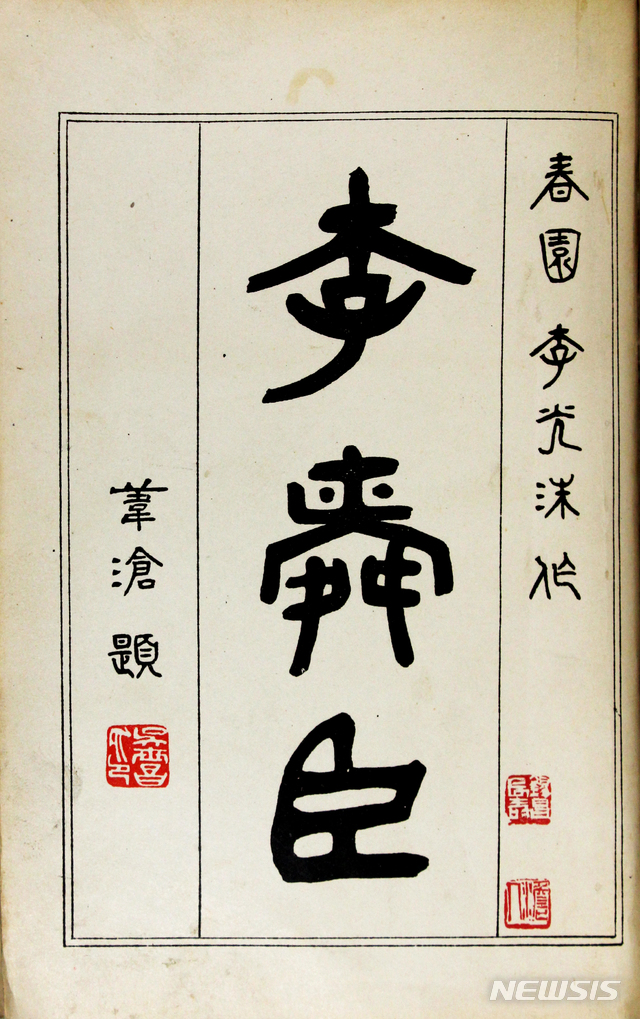 春園 李光洙 作
李舜臣
葦滄 題
NEWSIS